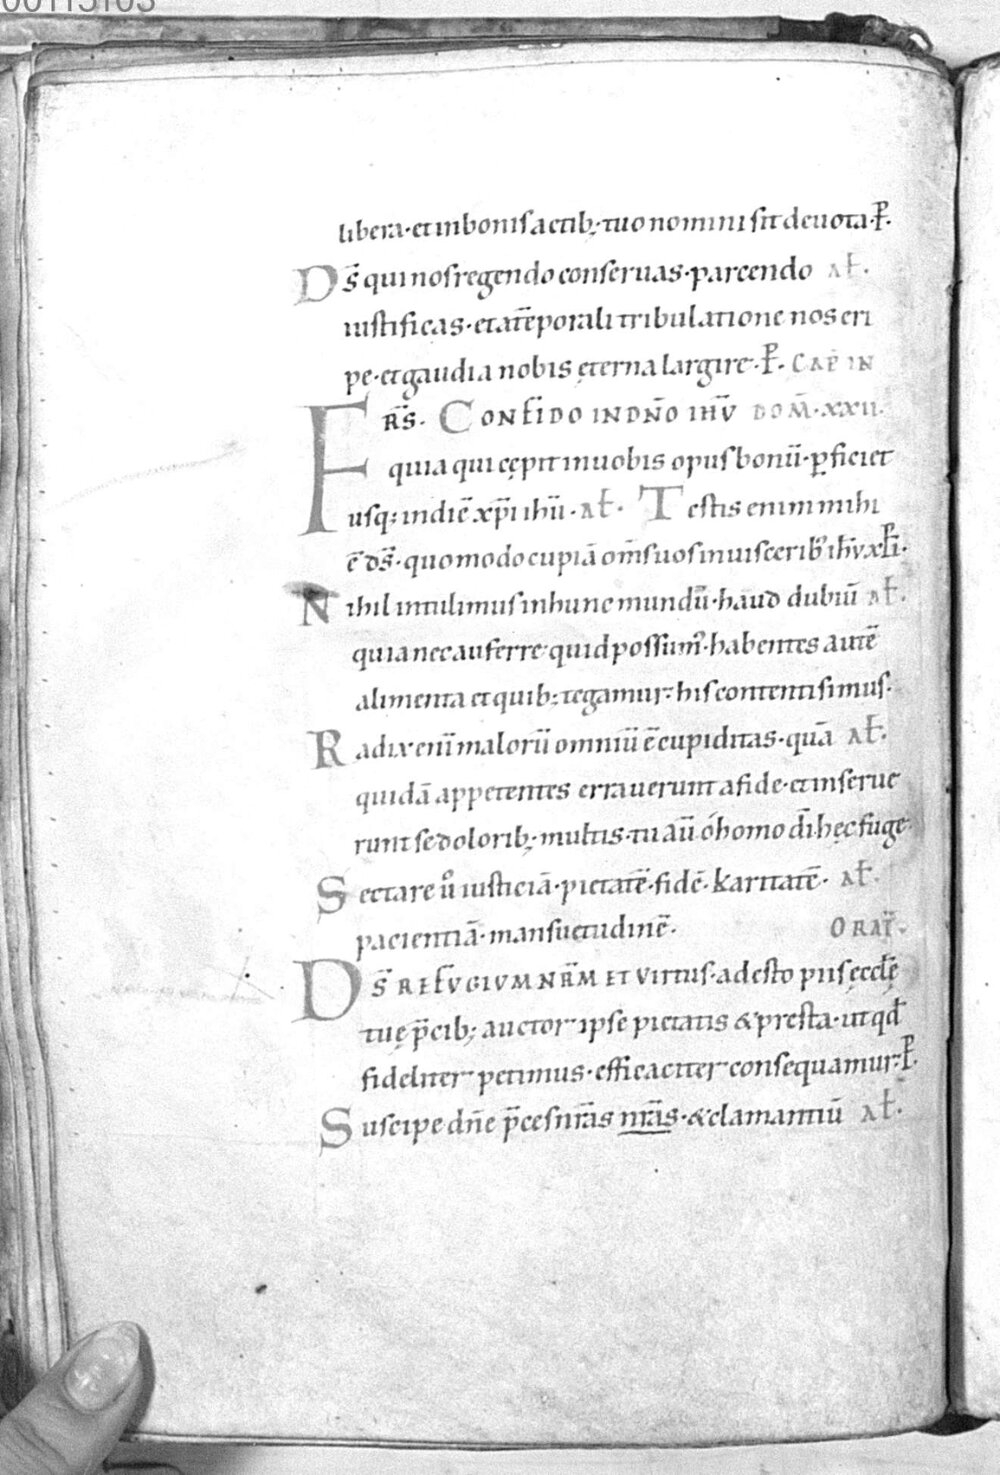 libera·et in bonis actib;·tuo nomini sit deuota·P̄.
Ds̄ qui nos regendo conseruas·parcendo al̄.
iustificas·et a tēporali tribulatione nos eri
pe·et gaudia nobis ęterna largire·P̄. CAP̄ IN
FRS̄. CONFIDO IN DN̄O IHV̄ DOM̄·XXII.
quia qui cępit in uobis opus bonū·ꝑficiet
usq; in diē xp̄i ihū·al̄. Testis enim mihi
ē ds̄·quomodo cupiā om̄s uos in uisceribꝰ ih̄v xp̄i.
Nihil intulimus in hunc mundū·haud dubiū al̄.
quia nec auferre quid possumꝰ·habentes autē
alimenta et quib; tegamur·his contenti simus.
Radix enī malorū omniū ē cupiditas·quā al̄.
quidā appetentes errauerunt a fide·et inserue
runt se dolorib; multis·tu aū ó homo dī hęc fuge
Sectare u̓ iusticiā·pietatē·fidē·karitatē· al̄.
pacientiā·mansuetudinē. ORAT̄.
DS̄ REFVGIVM NR̄M ET Virtus·adesto piis ęcclę̄
tuę p̄cib; auctor ipse pietatis & presta·ut qd̄
fideliter petimus·efficaciter consequamur·P̄.
Suscipe dn̄e p̄ces nr̄as nr̄as·& clamantiū al̄.